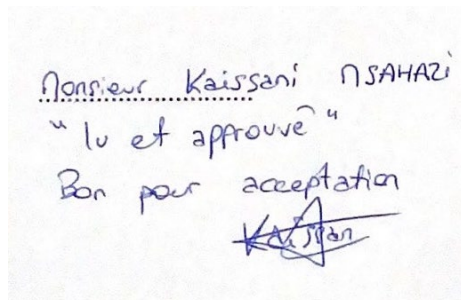 Monsieur Kaissani NSAHAZi
" lu et approuvé "
Bon pour acceptation
Kaissan